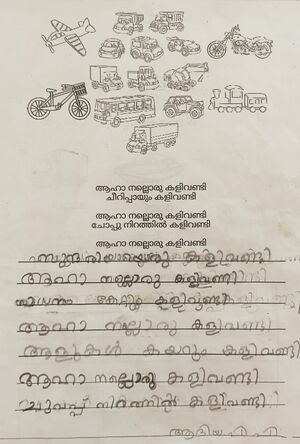 ആഹാ നല്ലൊരു കളിവണ്ടി
ചീറിപ്പായും കളിവണ്ടി
ആഹാ നല്ലൊരു കളിവണ്ടി
ചോപ്പു നിറത്തിൽ കളിവണ്ടി
ആഹാ നല്ലൊരു കളിവണ്ടി
കളിവണ്ടി
ആഹാ നല്ലൊരു കളിവണ്ടി
കേറും കളിവണ്ടി
ആഹാ നല്ലൊരു കളിവണ്ടി
ആളുകൾ കയറും കളിവണ്ടി
ആഹാ നല്ലൊരു കളിവണ്ടി
ചുവപ്പ് നിറത്തിൽ കളിവണ്ടി